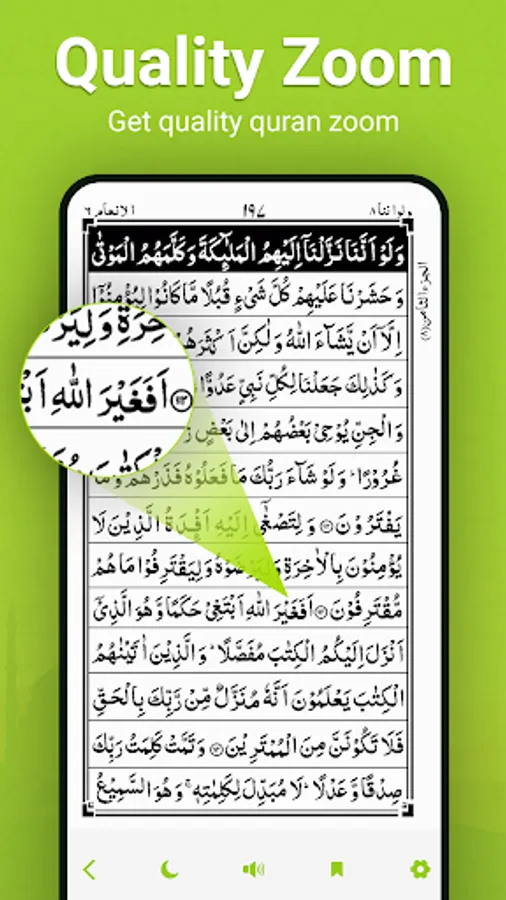 Quality Zoom
Get quality quran zoom
ولواننا ٨
١٩٧
الانعام ٦
وَلَوْ اَنَّنَا نَزَّلْنَاۤ اِلَيْهِمُ الْمَلٰٓئِكَةَ وَكَلَّمَهُمُ الْمَوْتٰى
وَحَشَرْنَا عَلَيْهِمْ كُلَّ شَىْءٍ قُبُلًا مَّا كَانُوْا لِيُؤْمِنُوْۤا
اِلَّاۤ اَنْ يَّشَآءَ اللّٰهُ وَلٰكِنَّ اَكْثَرَهُمْ
وَكَذٰلِكَ جَعَلْنَا لِكُلِّ نَبِىٍّ عَدُوًّا
وَالْجِنِّ يُوْحِىْ بَعْضُهُمْ اِلٰى بَعْضٍ
غُرُوْرًا ؕ وَلَوْ شَآءَ رَبُّكَ مَا فَعَلُوْهُ فَذَرْهُمْ وَمَا
يَفْتَرُوْنَ ۝ وَلِتَصْغٰۤى اِلَيْهِ اَفْـِٕدَةُ الَّذِيْنَ لَا
يُؤْمِنُوْنَ بِالْاٰخِرَةِ وَلِيَرْضَوْهُ وَلِيَقْتَرِفُوْا مَا هُمْ
مُّقْتَرِفُوْنَ ۝ اَفَغَيْرَ اللّٰهِ اَبْتَغِىْ حَكَمًا وَّهُوَ الَّذِىْۤ
اَنْزَلَ اِلَيْكُمُ الْكِتٰبَ مُفَصَّلًا ؕ وَالَّذِيْنَ اٰتَيْنٰهُمُ
الْكِتٰبَ يَعْلَمُوْنَ اَنَّهٗ مُنَزَّلٌ مِّنْ رَّبِّكَ بِالْحَقِّ
فَلَا تَكُوْنَنَّ مِنَ الْمُمْتَرِيْنَ ۝ وَتَمَّتْ كَلِمَتُ رَبِّكَ
صِدْقًا وَّعَدْلًا ؕ لَا مُبَدِّلَ لِكَلِمٰتِهٖ ۚ وَهُوَ السَّمِيْعُ
الجزء الثامن (٨)
خِرَةِ وَلِيَرْ
۝ اَفَغَيْرَ اللّٰهِ اَبْتَ